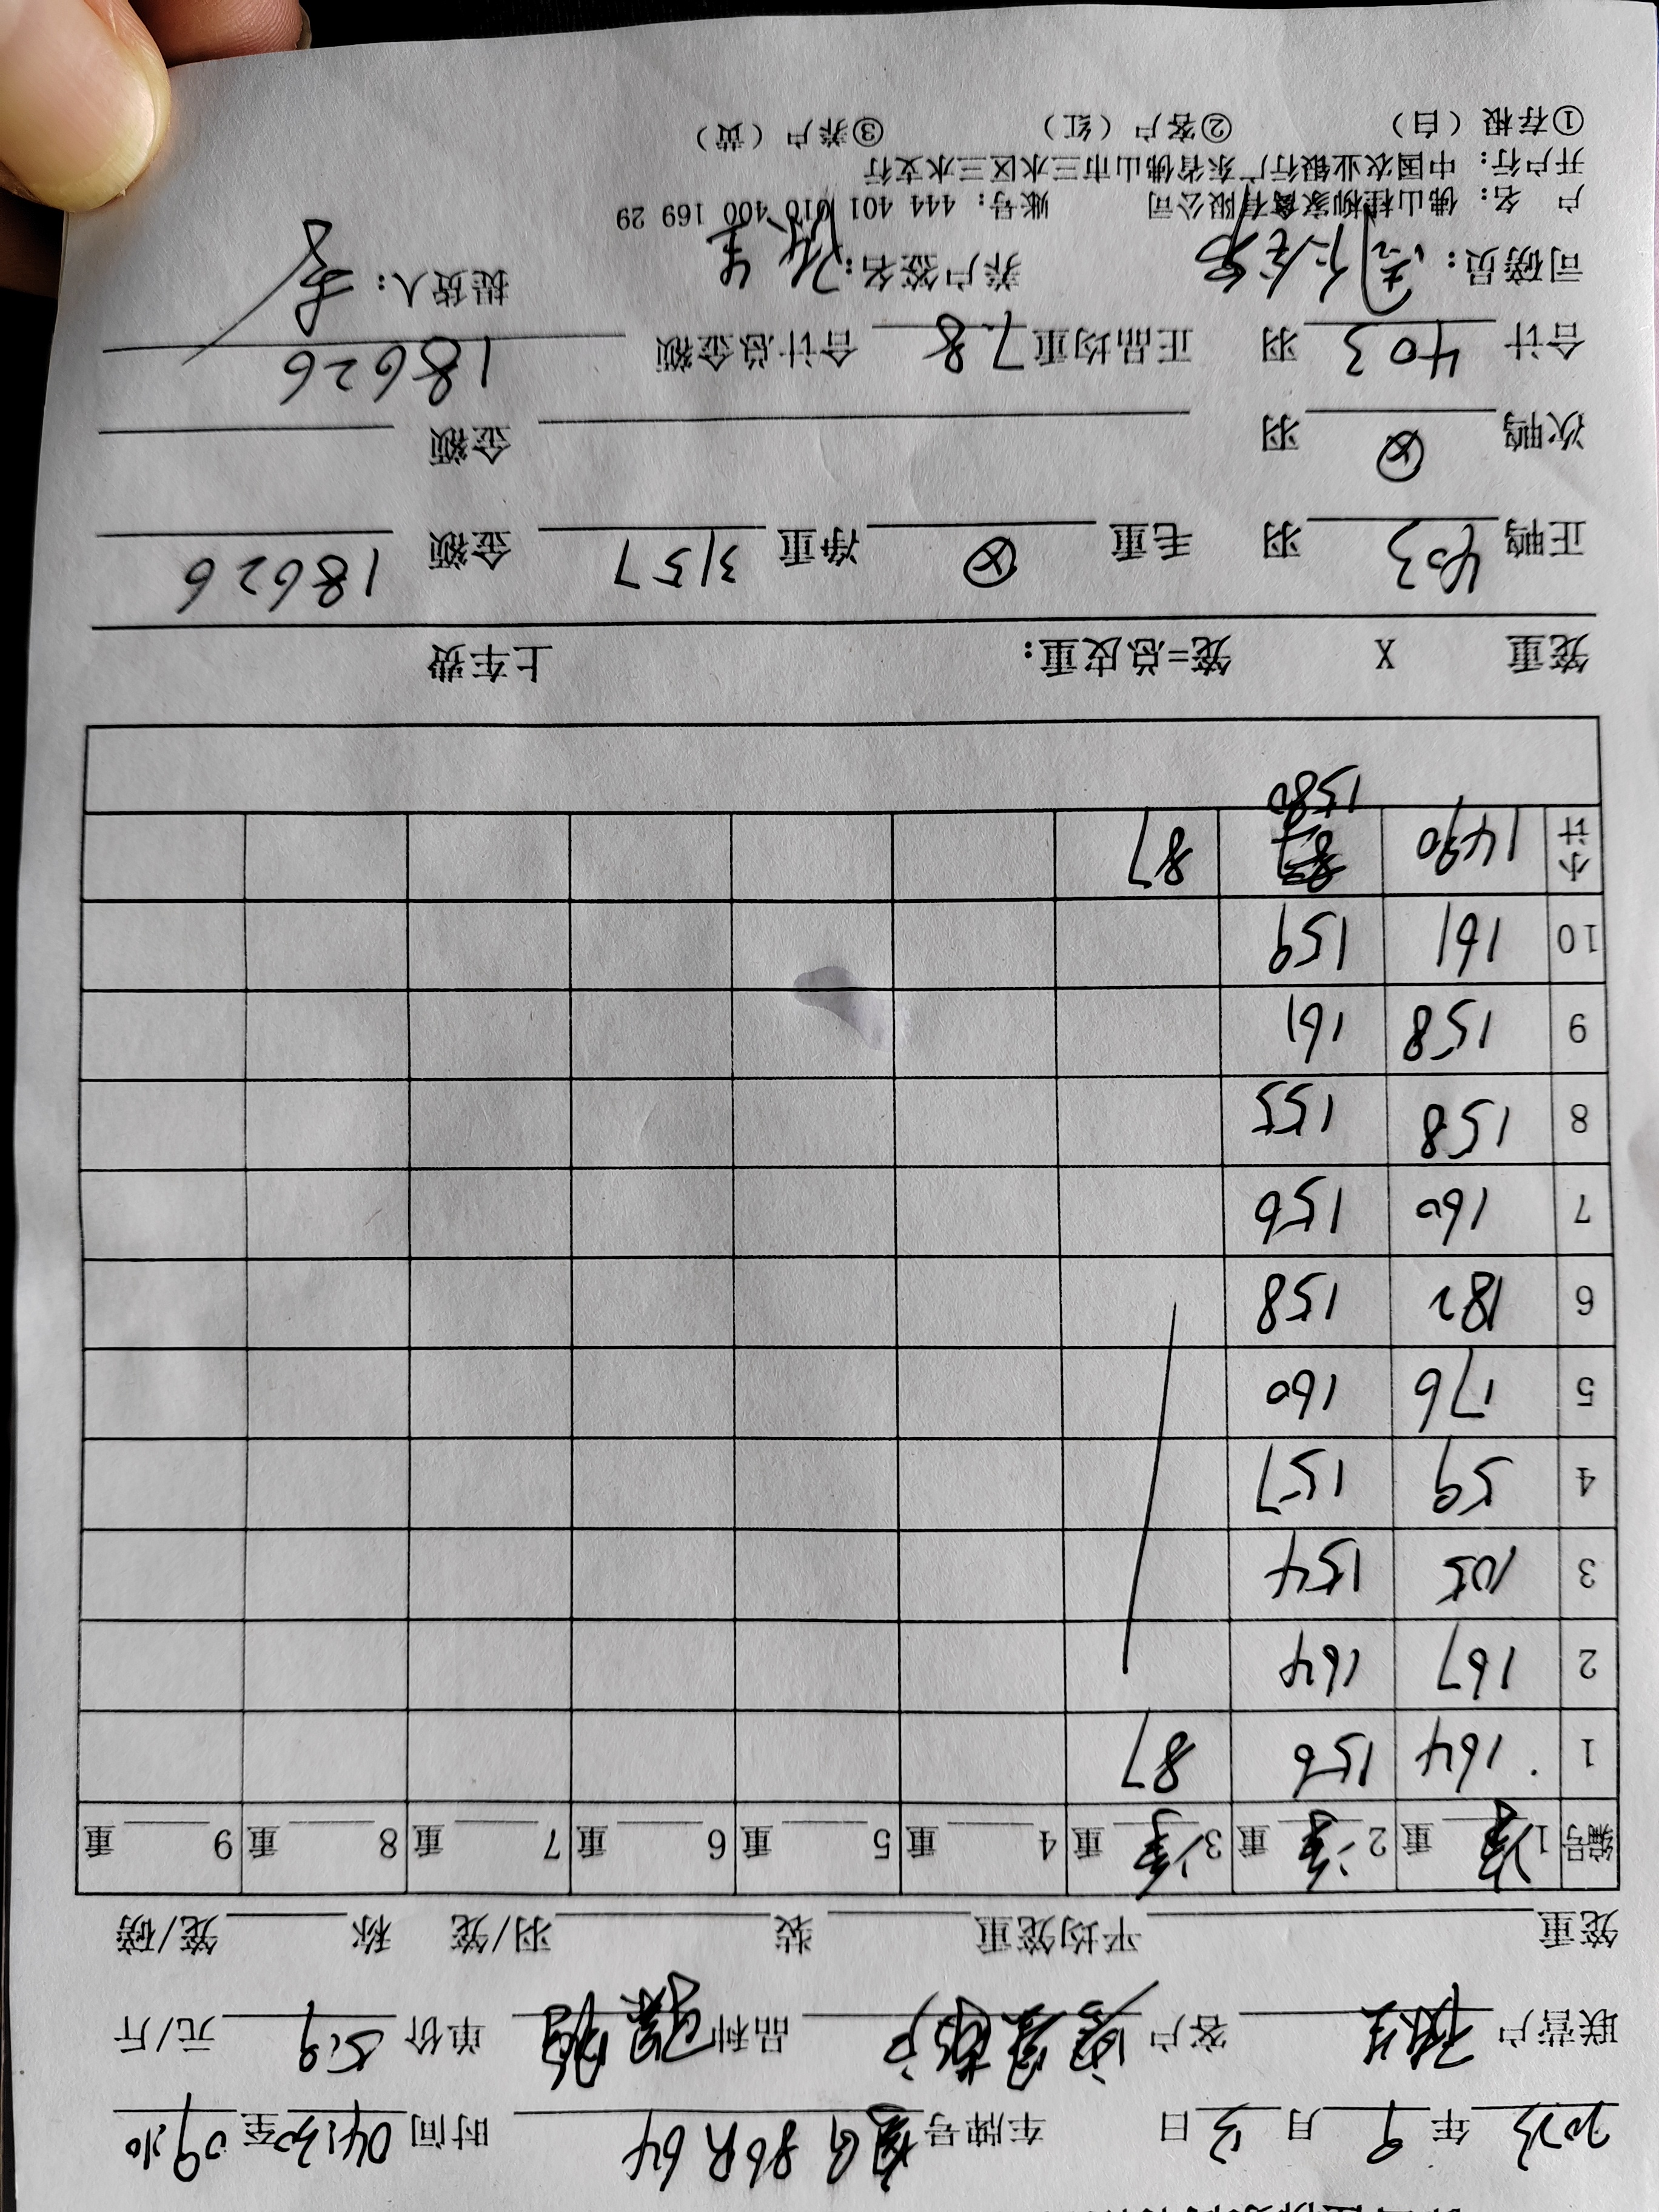 2023年9月3日 车牌号 86R64 时间04:30至09:10
联营户 客户 品种 单价5.9元/斤
笼重 平均笼重 装 羽/笼 称 笼/磅
编号 1净重 2净重 3净重 4 重 5 重 6 重 7 重 8 重 9 重
1 164 156 87
2 167 164
3 105 154
4 59 157
5 176 160
6 182 158
7 160 156
8 158 155
9 158 161
10 161 159
小计 1490 87
1580
笼重 X 笼=总皮重: 上车费
正鸭403羽 毛重ⓧ 净重3157 金额18626
次鸭ⓧ羽 金额
合计403羽 正品均重7.8 合计总金额18626
司磅员: 养户签名: 提货人:
户 名: 佛山桂柳家禽有限公司 账号: 444 401 010 400 169 29
开户行: 中国农业银行广东省佛山市三水区三水支行
①存根（白） ②客户（红） ③养户（黄）